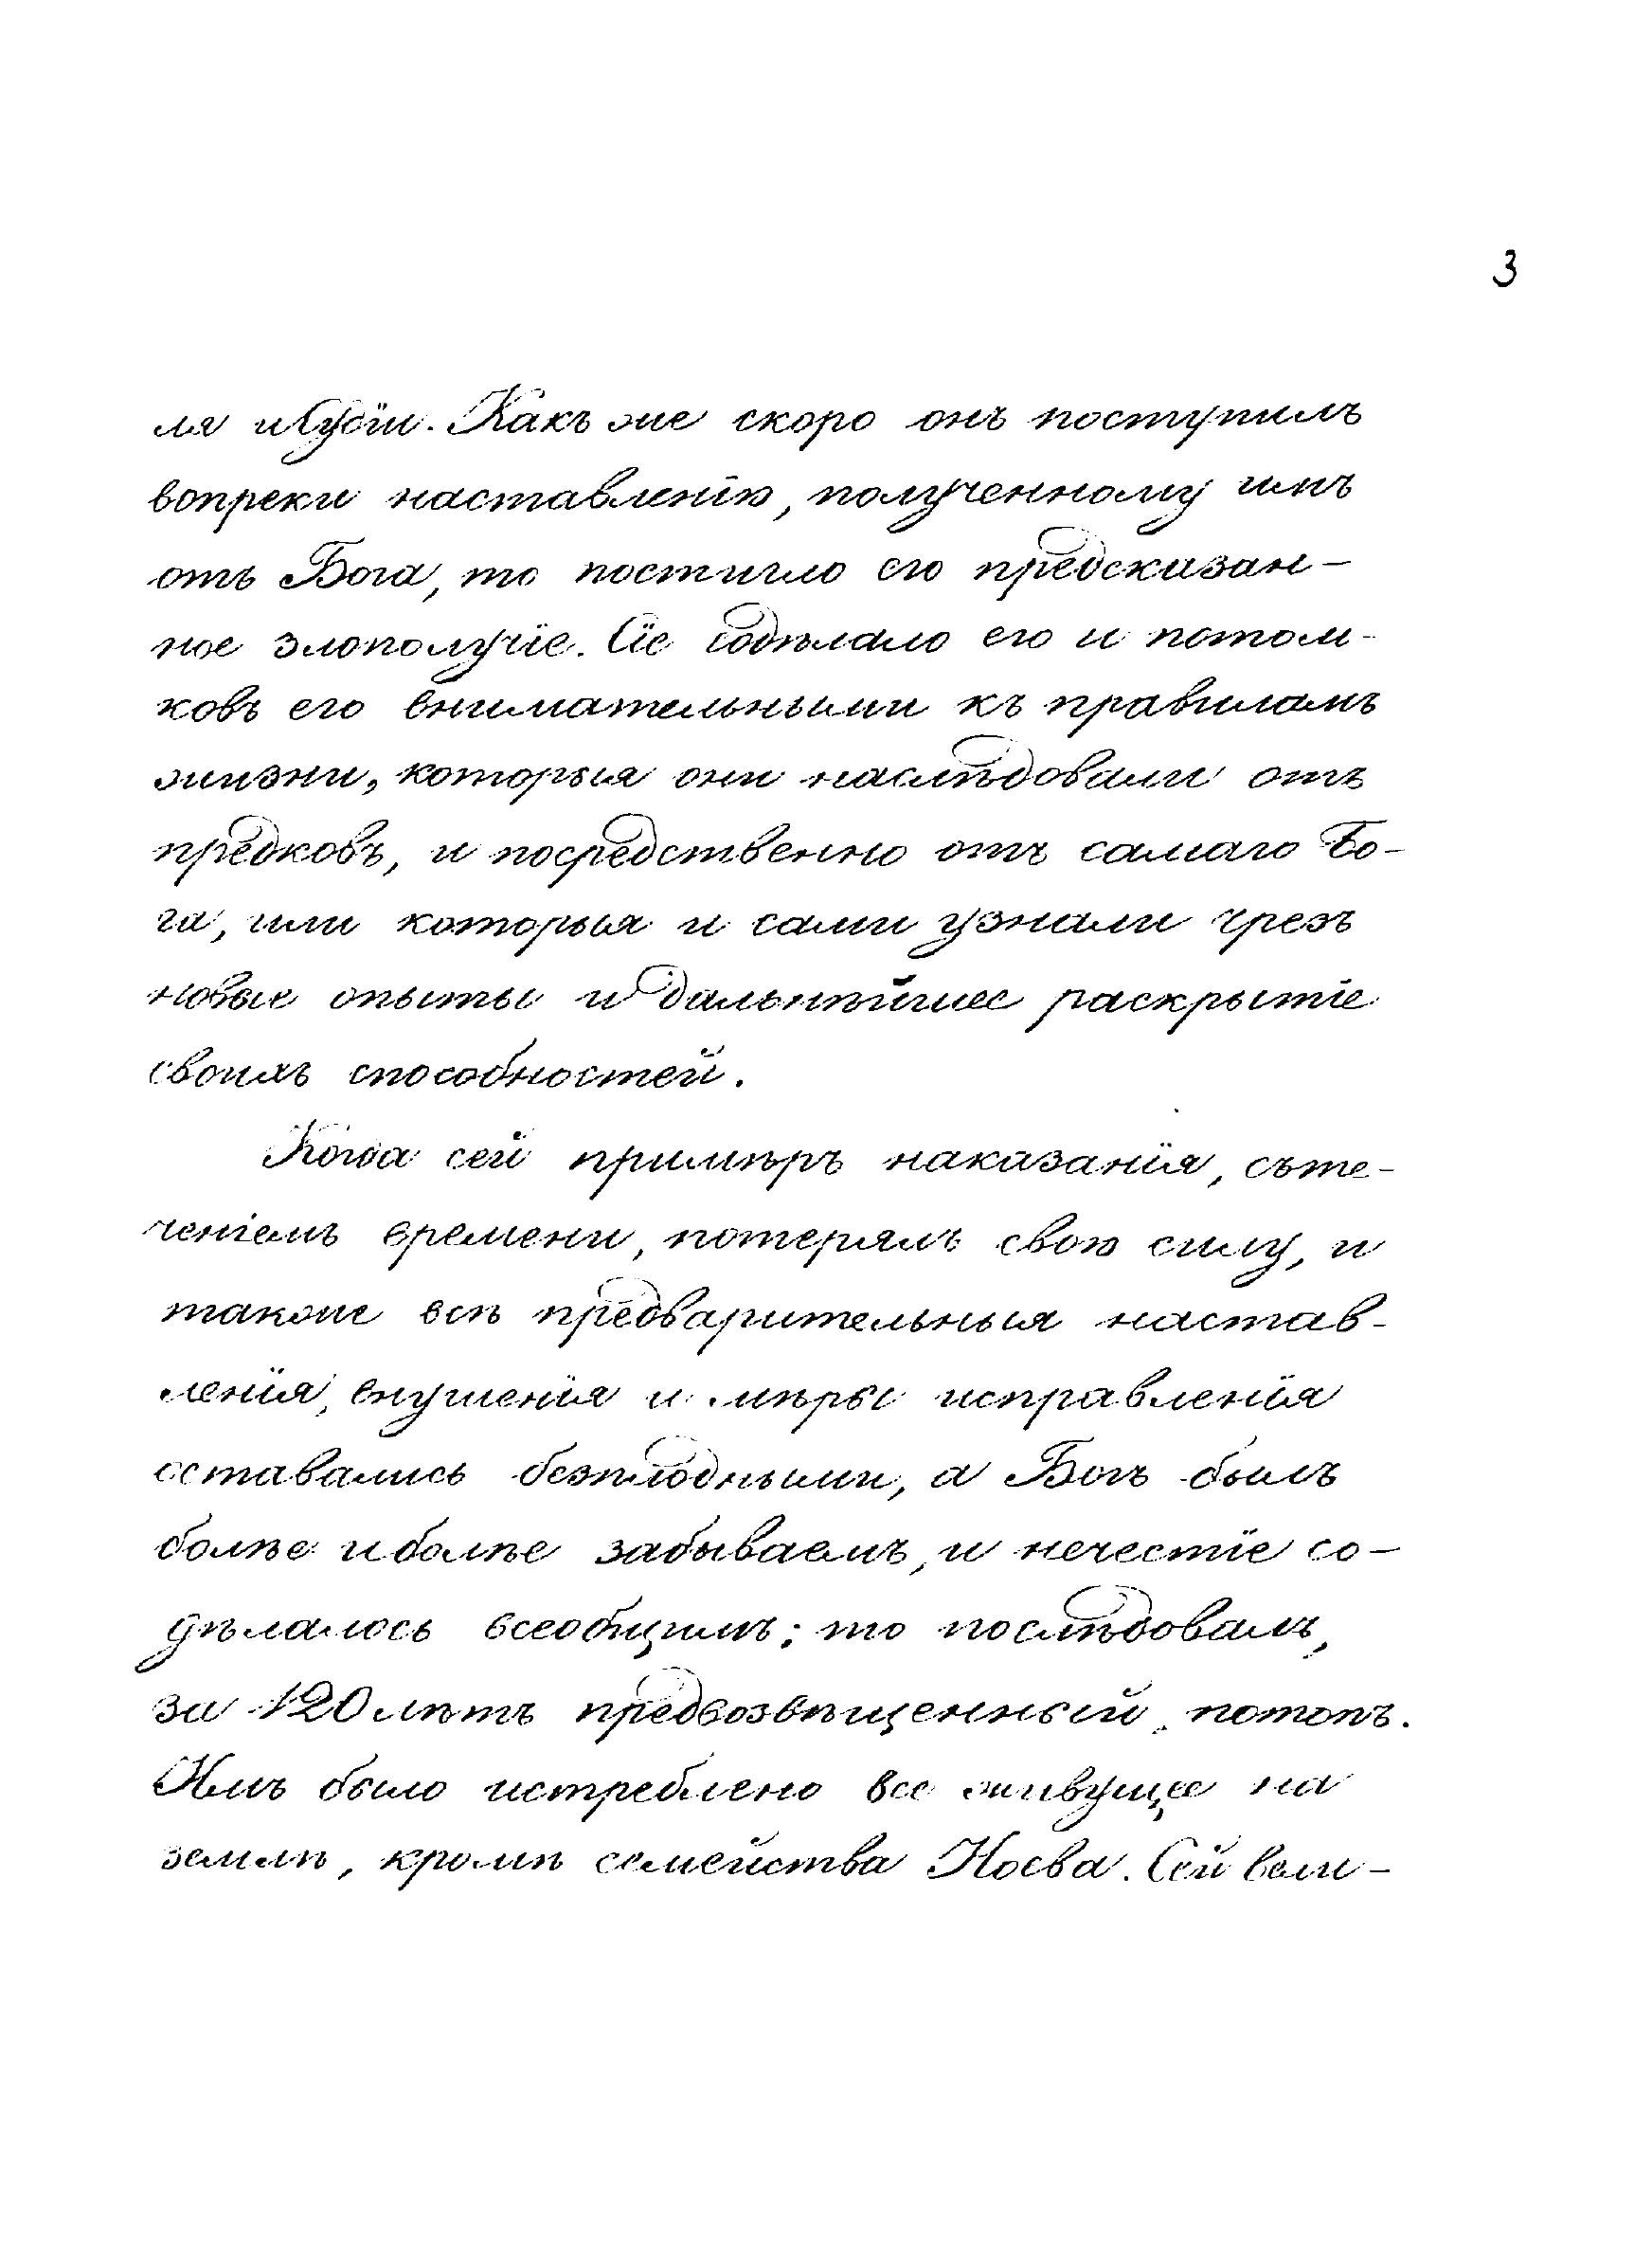 3
ля и Судіи. Какъ же скоро онъ поступилъ
вопреки наставленію, полученному имъ
отъ Бога, то постигло его предсказан-
ное злополучіе. Сіе содѣлало его и потом-
ковъ его внимательными къ правиламъ
жизни, которыя они наслѣдовали отъ
предковъ, и посредственно отъ самаго Бо-
га, или которыя и сами узнали чрезъ
новые опыты и дальнѣйшее раскрытіе
своихъ способностей.
Когда сей примѣръ наказанія, съ те-
ченіемъ времени, потерялъ свою силу, и
также всѣ предварительныя настав-
ленія, внушенія и мѣры исправленія
оставались безплодными, а Богъ былъ
болѣе и болѣе забываемъ, и нечестіе со-
дѣлалось всеобщимъ; то послѣдовалъ,
за 120 лѣтъ предвозвѣщенный, потопъ.
Имъ было истреблено все живущее на
землѣ, кромѣ семейства Ноева. Сей вели-